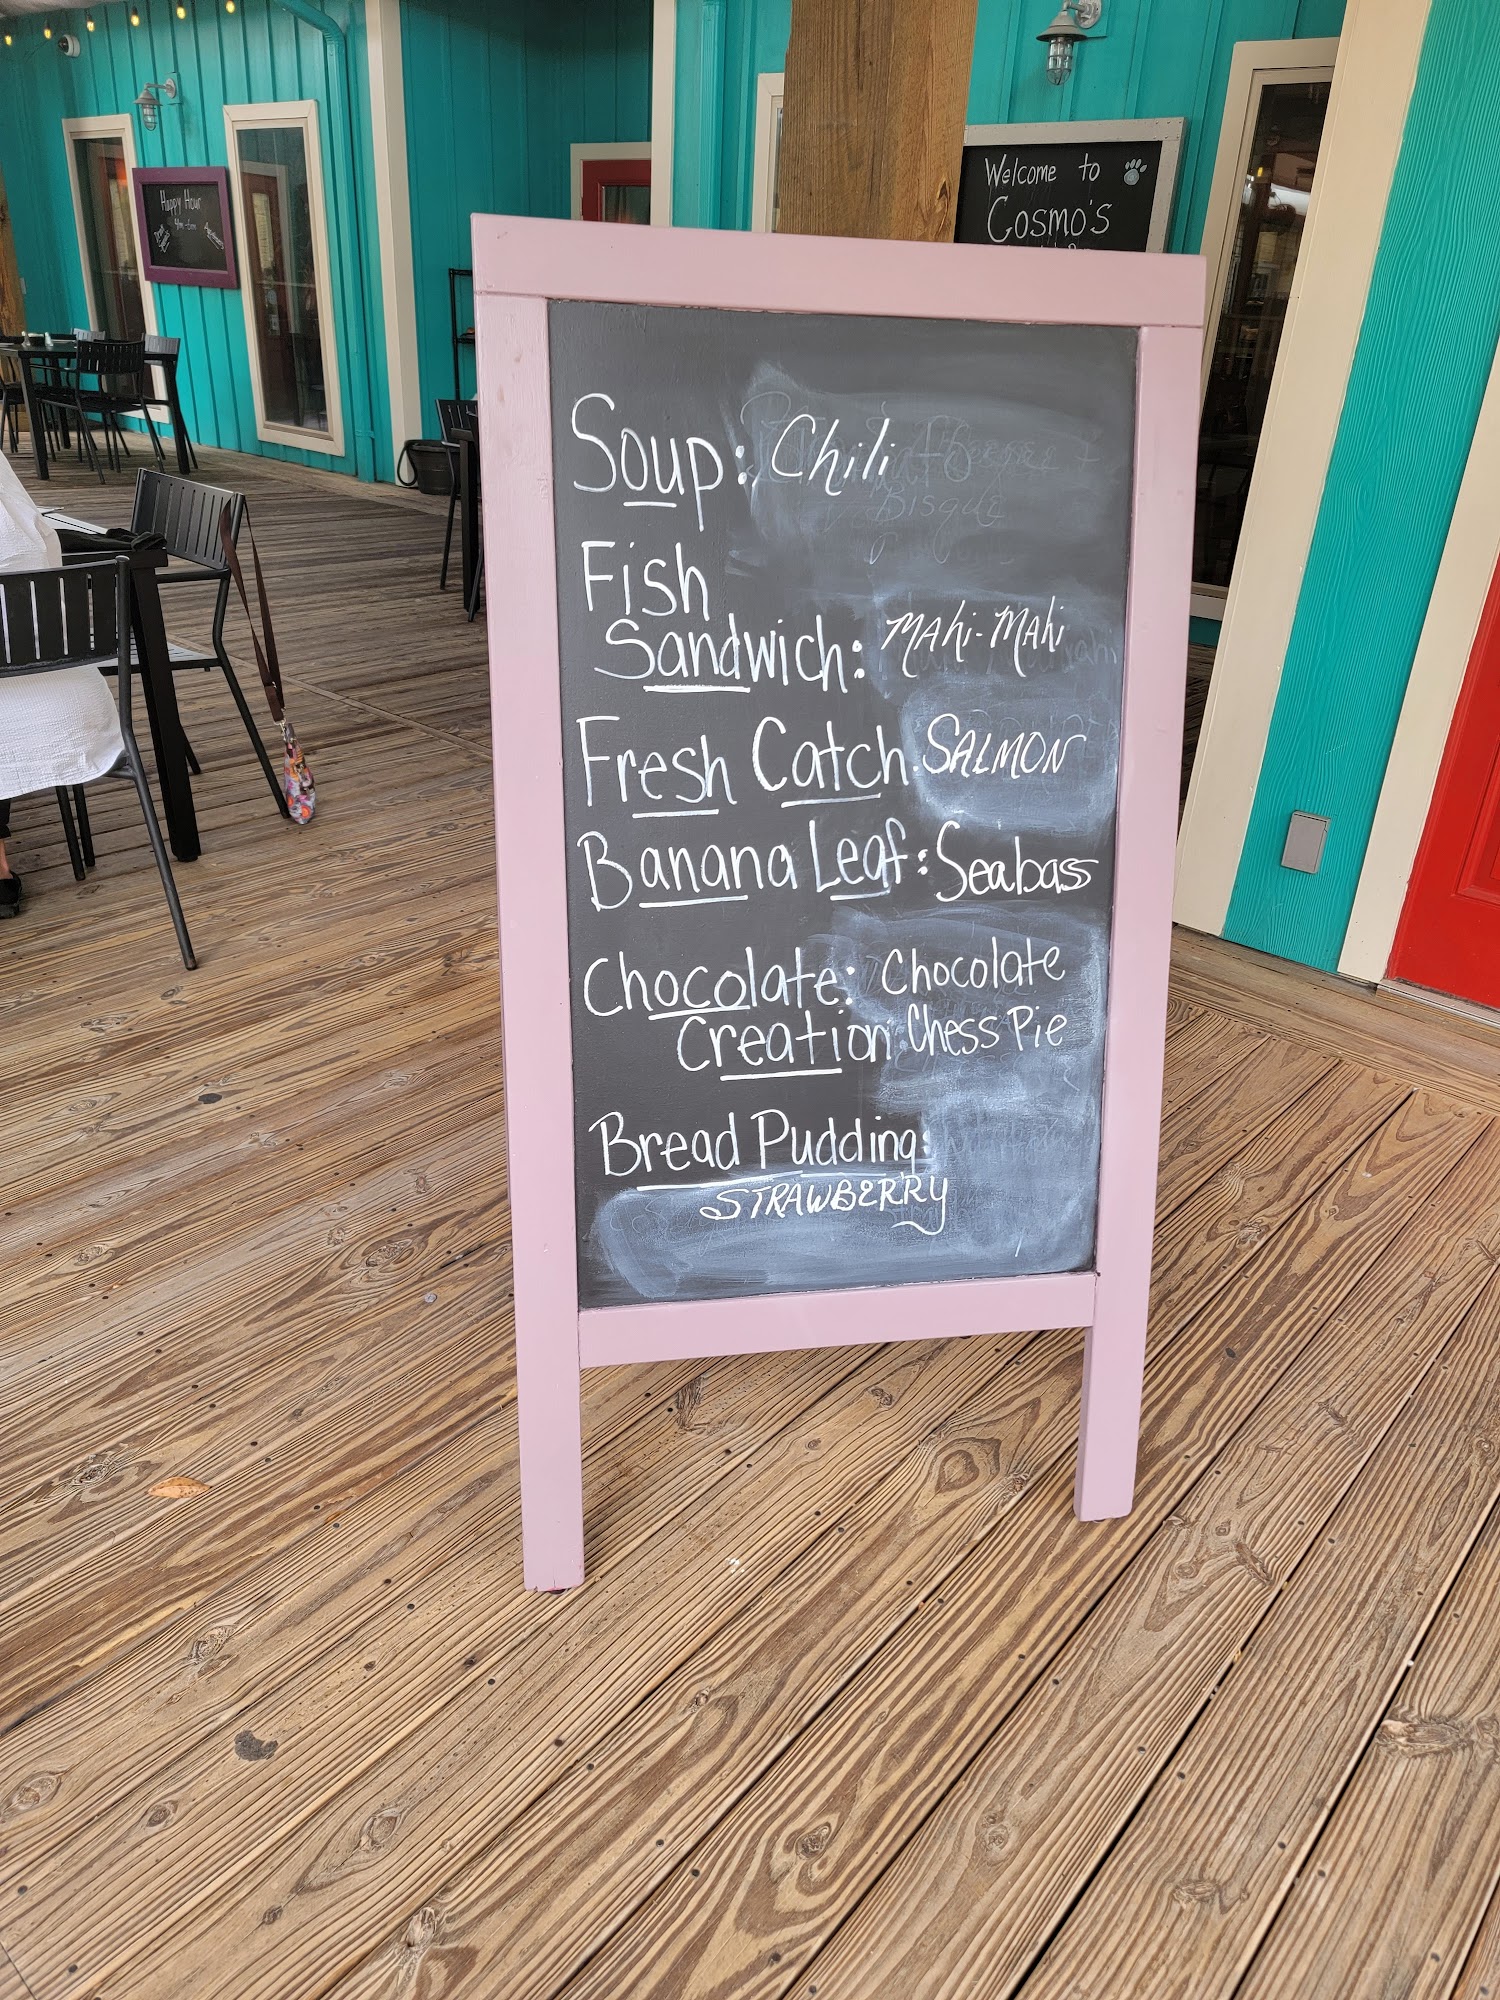 Happy Hour
Welcome to
Cosmo's
Soup: Chili
Fish
Sandwich: Mahi-Mahi
Fresh Catch: SALMON
Banana Leaf: Seabass
Chocolate: Chocolate
Creation: Chess Pie
Bread Pudding:
STRAWBERRY